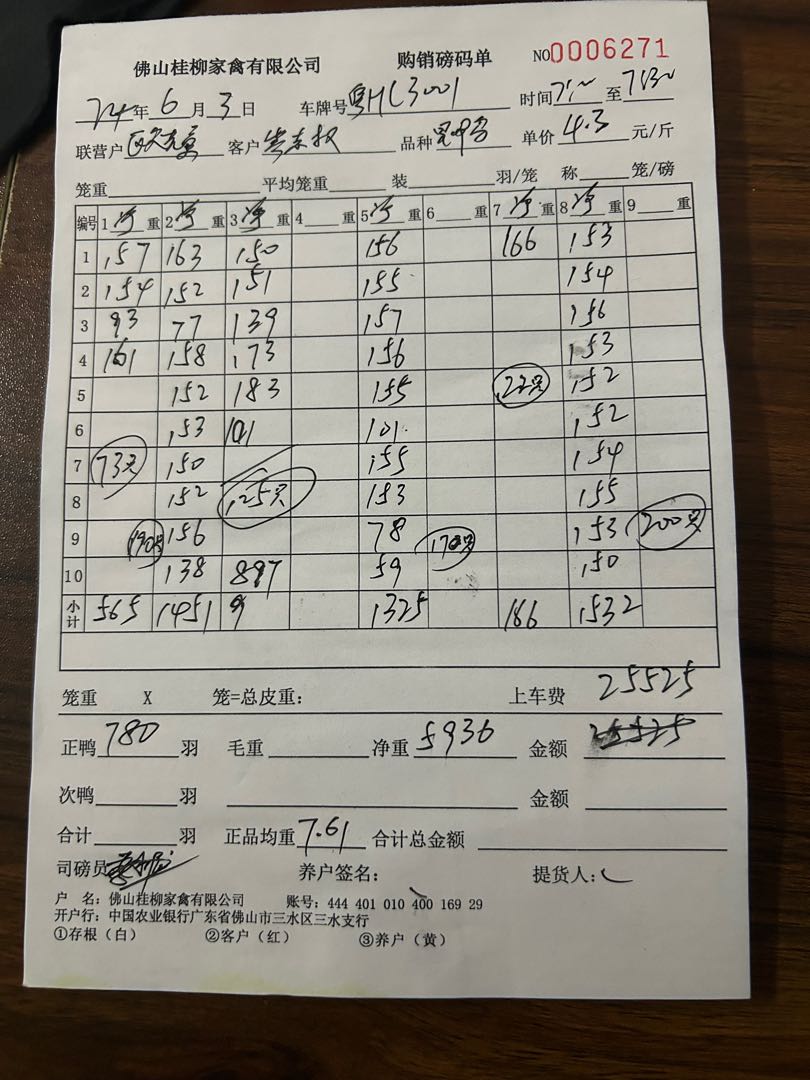 佛山桂柳家禽有限公司 购销磅码单 NO0006271
24年6月3日 车牌号粤HC3001 时间 至7:30
联营户 客户 品种 单价4.3元/斤
笼重 平均笼重 装 羽/笼 称 笼/磅
编号 1净重 2净重 3净重 4 重 5净重 6 重 7净重 8净重 9 重
1 157 163 150 156 166 153
2 154 152 151 155 154
3 93 77 139 157 156
4 161 158 173 156 153
5 152 183 155 22只 152
6 153 101 101 152
7 73只 150 155 154
8 152 125只 153 155
9 190只 156 78 170只 153 200只
10 138 897 59 150
小计 565 1451 9 1325 166 1532
笼重 X 笼=总皮重: 上车费 25525
正鸭780羽 毛重 净重5936 金额 25525
次鸭 羽 金额
合计 羽 正品均重7.61 合计总金额
司磅员 养户签名: 提货人:
户 名: 佛山桂柳家禽有限公司 账号: 444 401 010 400 169 29
开户行: 中国农业银行广东省佛山市三水区三水支行
①存根(白) ②客户(红) ③养户(黄)